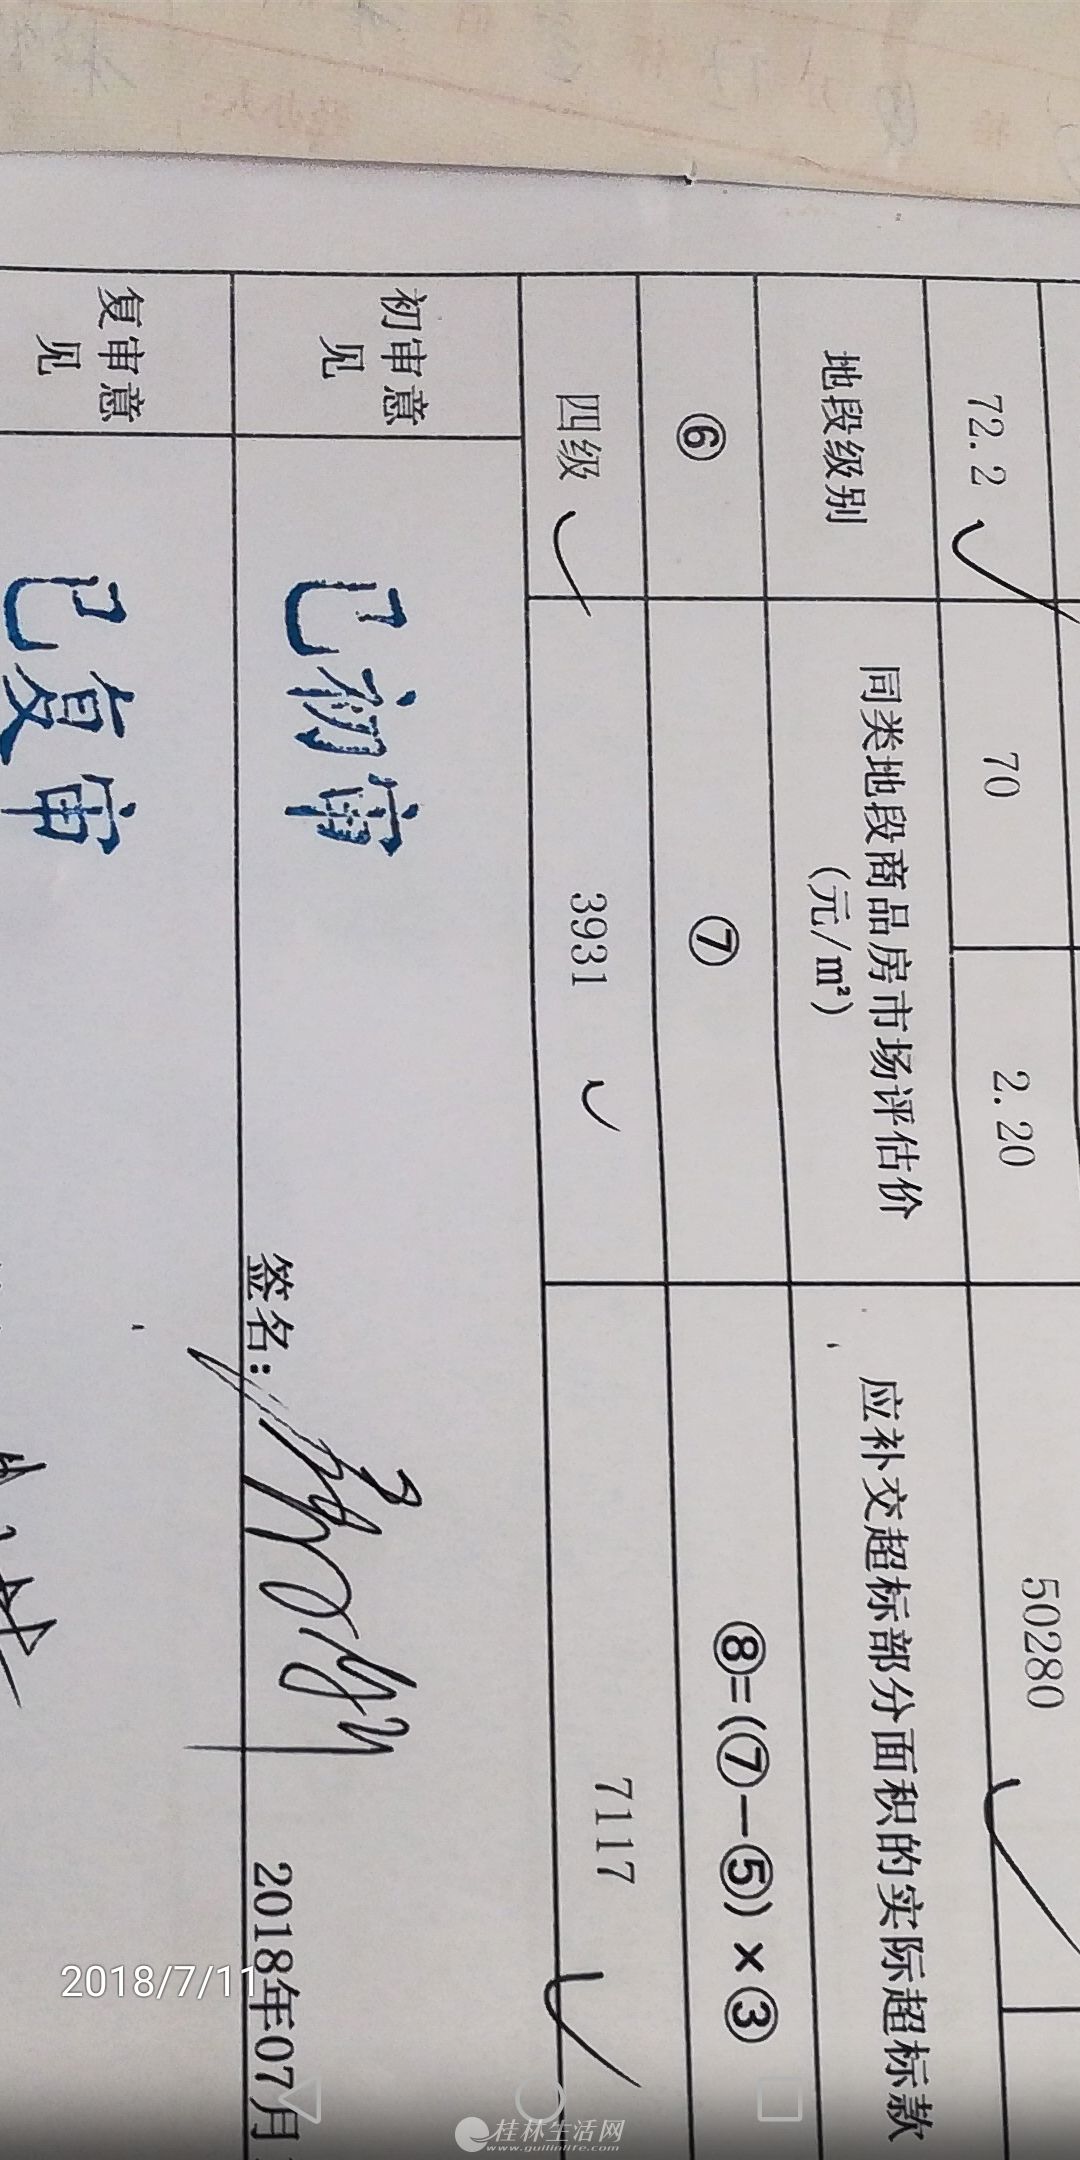 72.2 70 2.20 50280
地段级别 同类地段商品房市场评估价 应补交超标部分面积的实际超标款
(元/m²)
⑥ ⑦ ⑧=(⑦−⑤)×③
四级 3931 7117
初审意见
已初审
签名：
2018年07月
复审意见
已复审
2018/7/11
桂林生活网
www.guilinlife.com